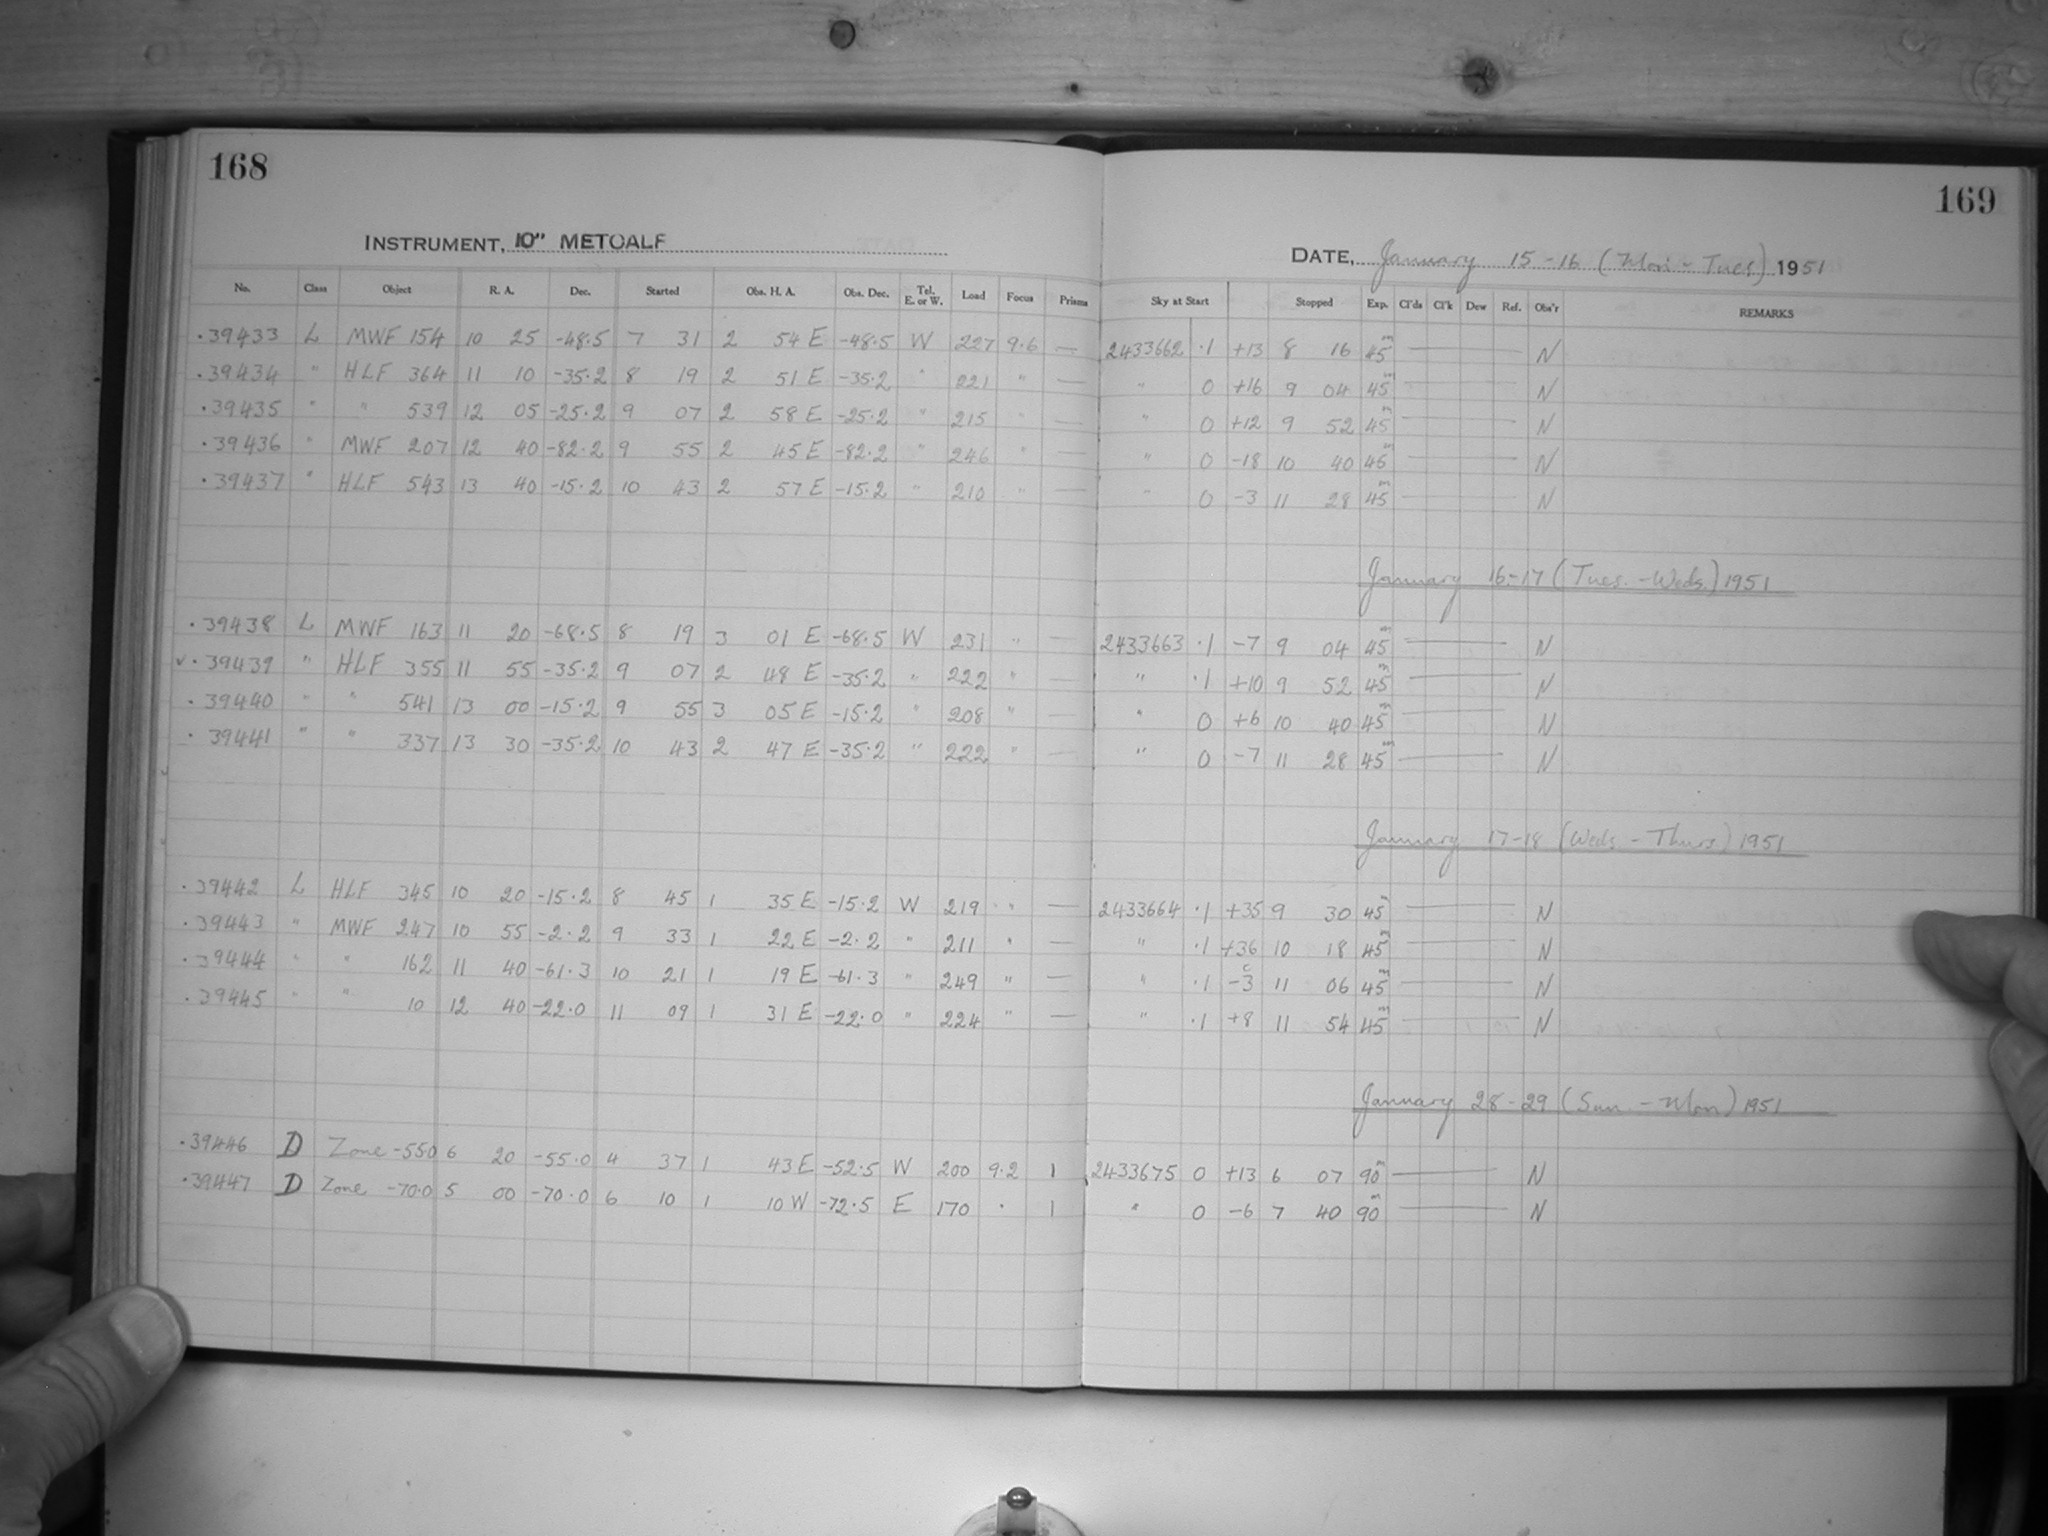 168
169
INSTRUMENT, 10" METCALF
DATE, January 15-16 (Mon - Tues) 1951
No. Class Object R. A. Dec. Started Obs. H. A. Obs. Dec. Tel. E. or W. Load Focus Prisms Sky at Start Stopped Exp. Cl'ds Cl'k Dew Ref. Obs'r REMARKS
.39433 L MWF 154 10 25 -48.5 7 31 2 54 E -48.5 W 227 9.6 — 2433662 .1 +13 8 16 45m — N
.39434 " HLF 364 11 10 -35.2 8 19 2 51 E -35.2 " 221 " — " 0 +16 9 04 45m — N
.39435 " " 539 12 05 -25.2 9 07 2 58 E -25.2 " 215 " — " 0 +12 9 52 45m — N
.39436 " MWF 207 12 40 -82.2 9 55 2 45 E -82.2 " 246 " — " 0 -18 10 40 45m — N
.39437 " HLF 543 13 40 -15.2 10 43 2 57 E -15.2 " 210 " — " 0 -3 11 28 45m — N
January 16-17 (Tues. - Weds.) 1951
.39438 L MWF 163 11 20 -68.5 8 19 3 01 E -68.5 W 231 " — 2433663 .1 -7 9 04 45m — N
v .39439 " HLF 355 11 55 -35.2 9 07 2 48 E -35.2 " 222 " — " .1 +10 9 52 45m — N
.39440 " " 541 13 00 -15.2 9 55 3 05 E -15.2 " 208 " — " 0 +6 10 40 45m — N
.39441 " " 337 13 30 -35.2 10 43 2 47 E -35.2 " 222 " — " 0 -7 11 28 45m — N
January 17-18 (Weds. - Thurs.) 1951
.39442 L HLF 345 10 20 -15.2 8 45 1 35 E -15.2 W 219 " — 2433664 .1 +35 9 30 45m — N
.39443 " MWF 247 10 55 -2.2 9 33 1 22 E -2.2 " 211 " — " .1 +36 10 18 45m — N
.39444 " " 162 11 40 -61.3 10 21 1 19 E -61.3 " 249 " — " .1 -3 11 06 45m — N
.39445 " " 10 12 40 -22.0 11 09 1 31 E -22.0 " 224 " — " .1 +8 11 54 45m — N
January 28-29 (Sun. - Mon) 1951
.39446 D Zone -55.0 6 20 -55.0 4 37 1 43 E -52.5 W 200 9.2 1 2433675 0 +13 6 07 90m — N
.39447 D Zone -70.0 5 00 -70.0 6 10 1 10 W -72.5 E 170 " 1 " 0 -6 7 40 90m — N